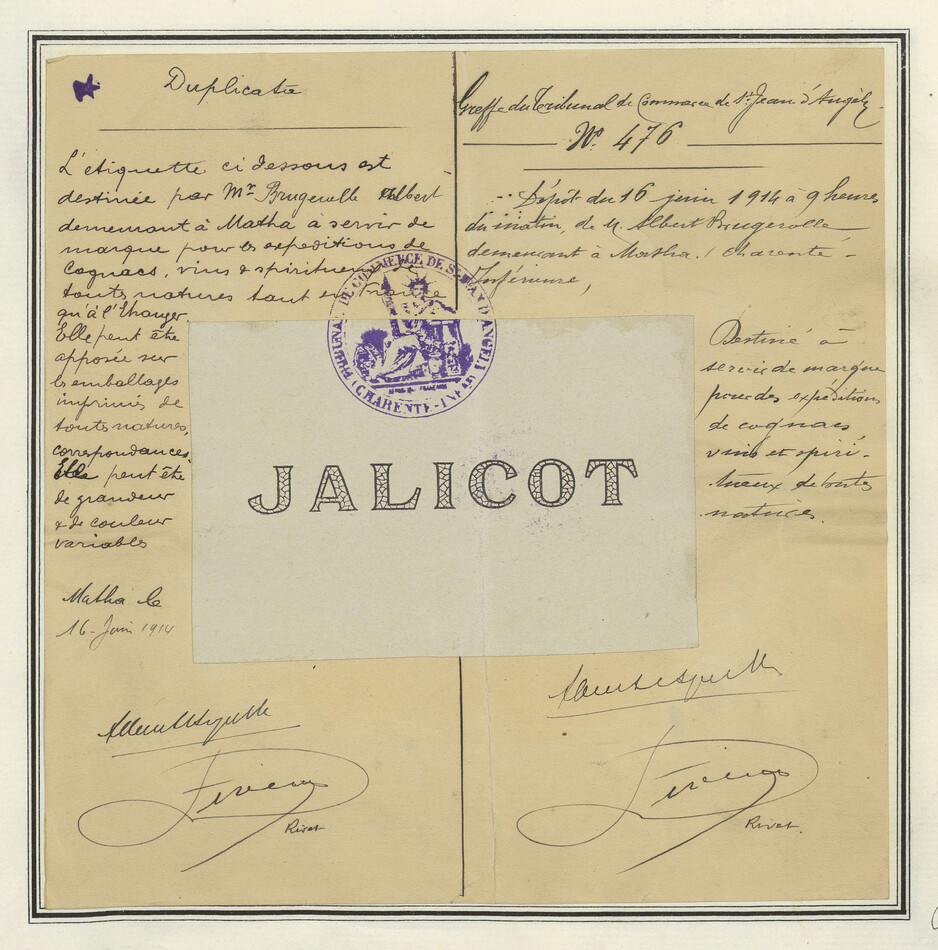 Duplicata
L'étiquette ci dessous est
destinée par Mr Brugerolle Albert
demeurant à Matha à servir de
marque pour les expéditions de
Cognacs, vins & spiritueux de
toutes natures tant en France
qu'à l'Etranger.
Elle peut être
apposée sur
les emballages
imprimés de
toutes natures,
correspondances.
Elle peut être
de grandeur
& de couleur
variables
Matha le
16 - Juin 1914
Rivet
Greffe du Tribunal de Commerce de St Jean d'Angély.
No. 476
Dépôt du 16 juin 1914 à 9 heures
du matin, de M. Albert Brugerolle
demeurant à Matha, Charente -
Inférieure,
Destiné à
servir de marque
pour des expéditions
de cognacs
vins et spiri-
tueux de toutes
natures.
Rivet.
TRIBUNAL DE COMMERCE DE ST JEAN D'ANGELY
(CHARENTE-INFRE)
JALICOT